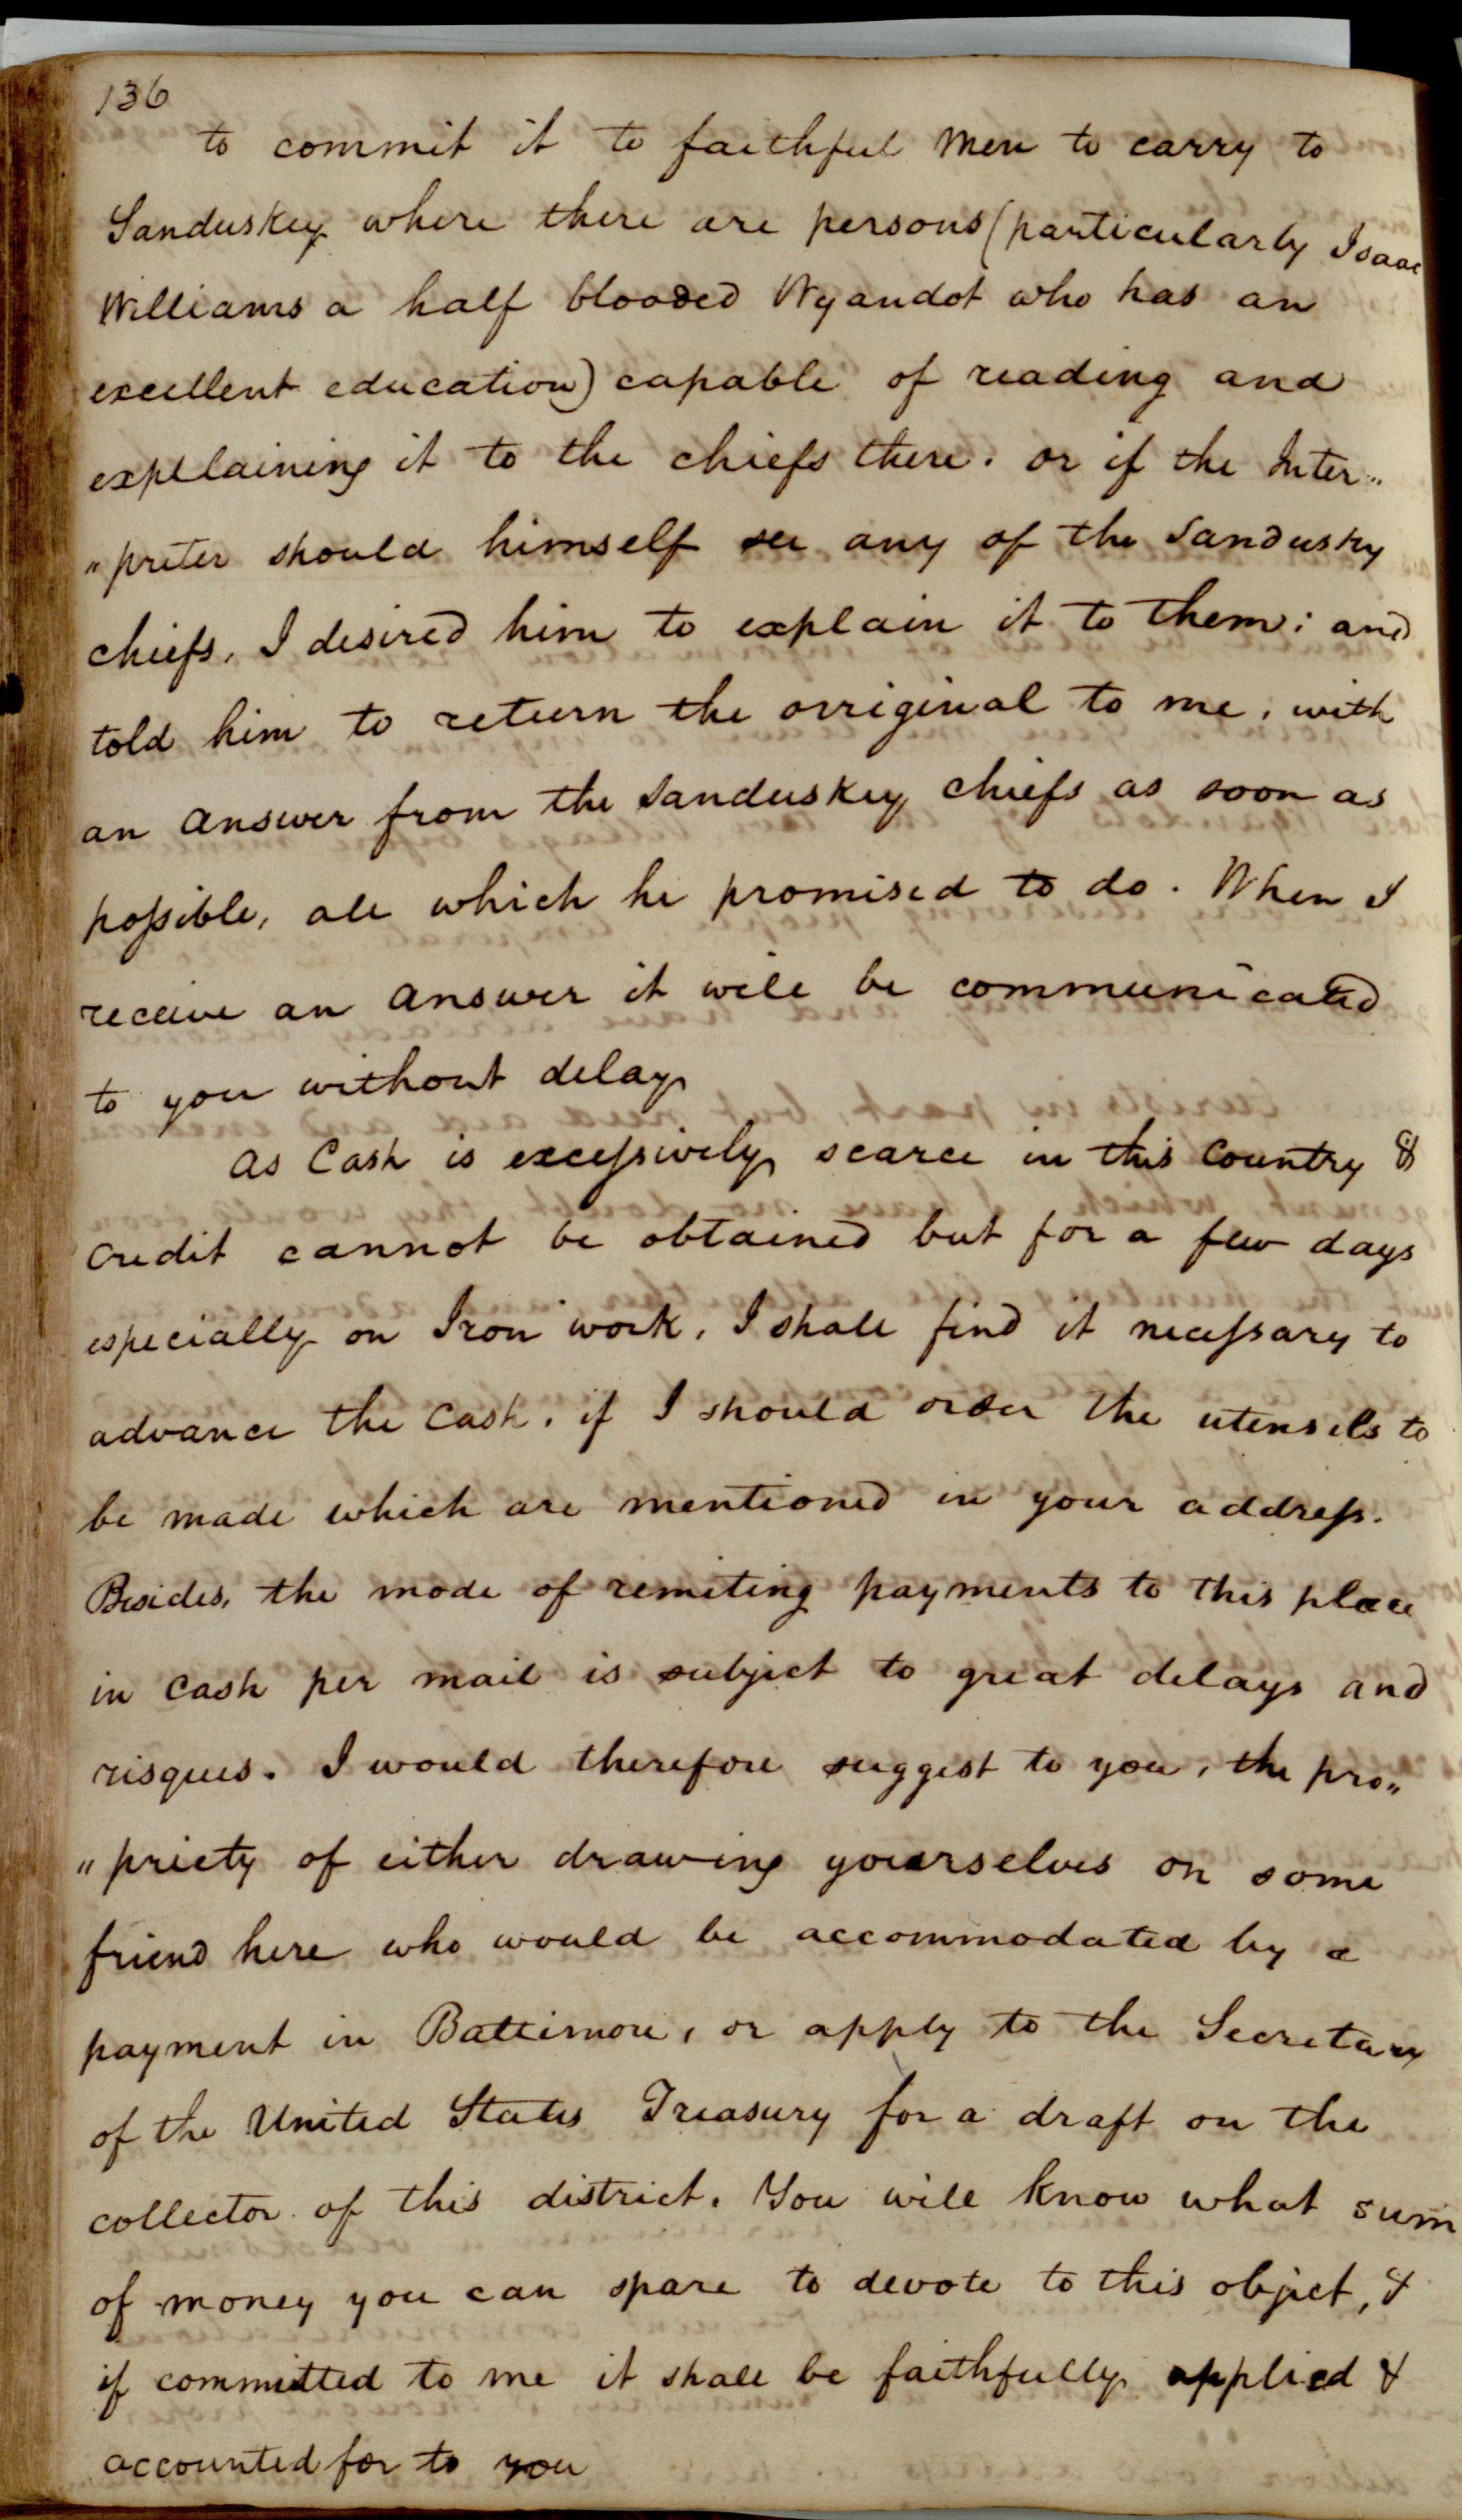 136
to commit it to faithful men to carry to
Sanduskey where there are persons (particularly Isaac
Williams a half blooded Wyandot who has an
excellent education) capable of reading and
expllaining it to the chiefs there. or if the Inter„
„preter should himself see any of the Sandusky
chiefs, I desired him to explain it to them; and
told him to return the orriginal to me, with
an answer from the Sanduskey chiefs as soon as
possible, all which he promised to do. When I
receive an answer it will be communicated
to you without delay
As Cash is excessively scarce in this Country &
credit cannot be obtained but for a few days
especially on Iron work, I shall find it necessary to
advance the Cash, if I should order the utensils to
be made which are mentioned in your address.
Besides, the mode of remiting payments to this place
in Cash per mail is subject to great delays and
risques. I would therefore suggest to you, the pro„
„priety of either drawing yourselves on some
friend here who would be accommodated by a
payment in Baltimore, or apply to the Secretary
of the United States Treasury for a draft on the
collector of this district. You will know what sum
of money you can spare to devote to this object, &
if committed to me it shall be faithfully applied &
accounted for to you